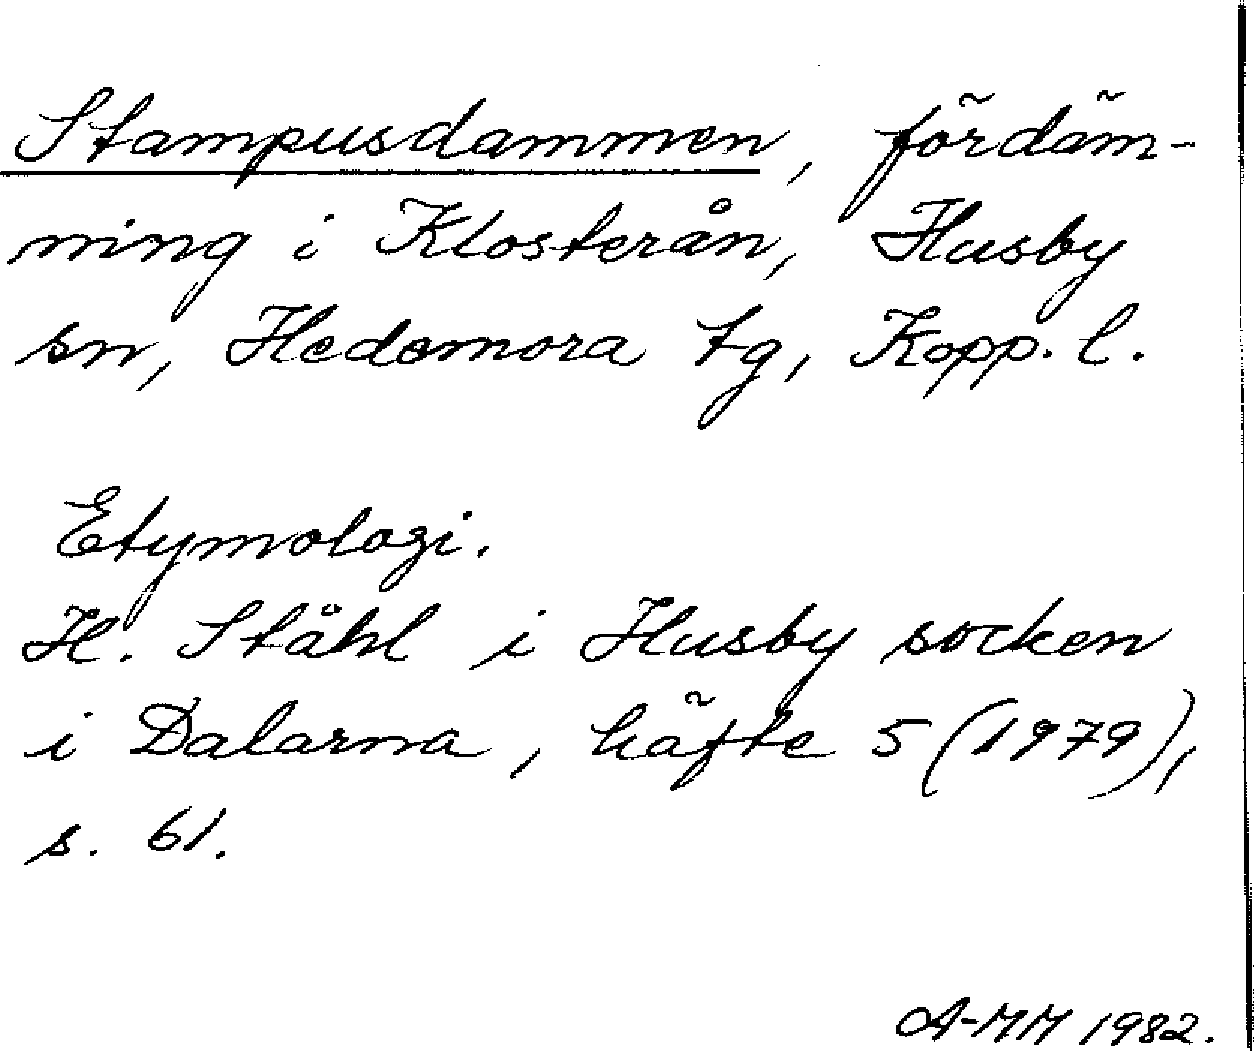 Stampusdammen, fördäm-
ning i Klosterån, Husby
sn, Hedemora tg, Kopp. l.
Etymologi.
H. Ståhl i Husby socken
i Dalarna, häfte 5 (1979),
s. 61.
A-MM 1982.